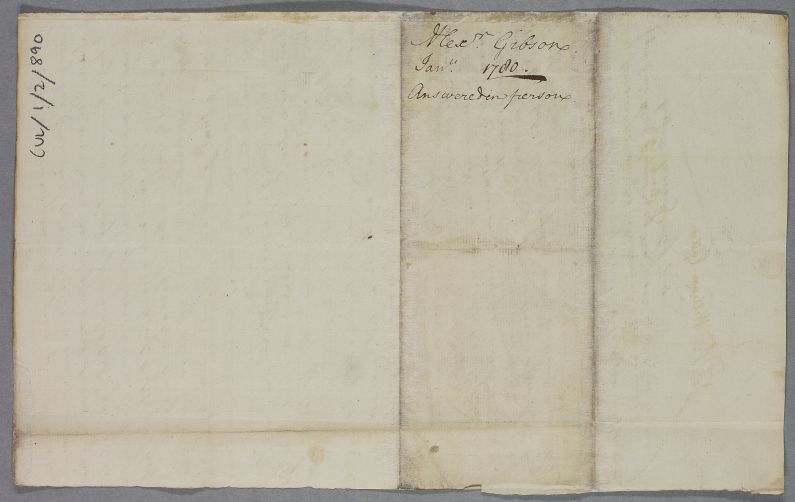 Alexr. Gibson.
Jany. 1780.
Answered in person.
CUL/1/2/890